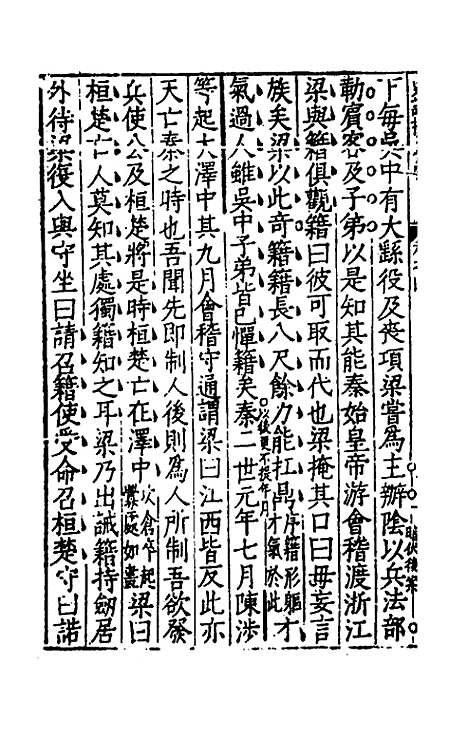 下每吳中有大繇役及喪項梁嘗為主辦陰以兵法部
勒賓客及子弟以是知其能秦始皇帝游會稽渡浙江
梁與籍俱觀籍曰彼可取而代也梁掩其口曰毋妄言
族矣梁以此奇籍籍長八尺餘力能扛鼎序籍形軀才氣於此才
氣過人雖吳中子弟皆已憚籍矣以後更不挨年月秦二世元年七月陳涉
等起大澤中其九月會稽守通謂梁曰江西皆反此亦
天亡秦之時也吾聞先即制人後則為人所制吾欲發
兵使公及桓楚將是時桓楚亡在澤中以倉卒起梁曰
桓楚亡人莫知其處獨籍知之耳梁乃出誡籍持劒居
外待梁復入與守坐曰請召籍使受命召桓楚守曰諾